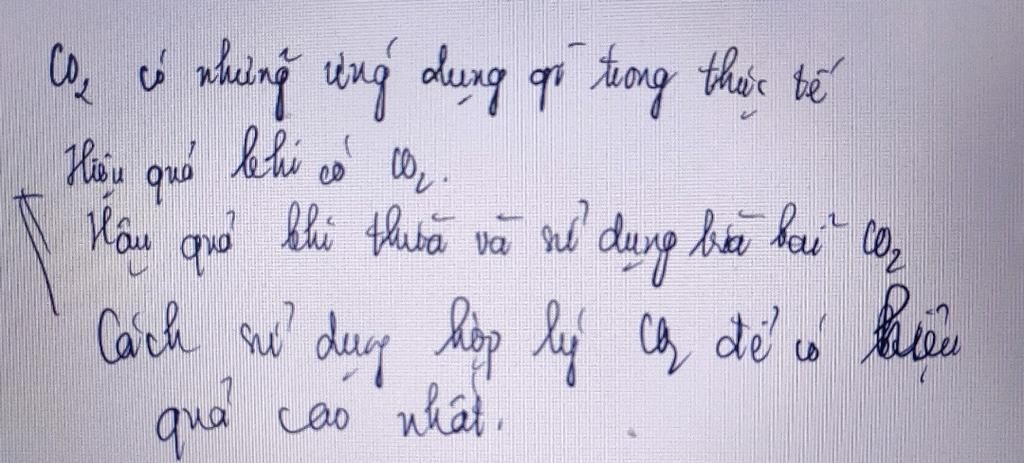 CO₂ có những ứng dụng gì trong thực tế
Hiệu quả khi có CO₂.
Hậu quả khi thừa và sử dụng bừa bãi CO₂
Cách sử dụng hợp lý CO₂ để có hiệu
quả cao nhất.